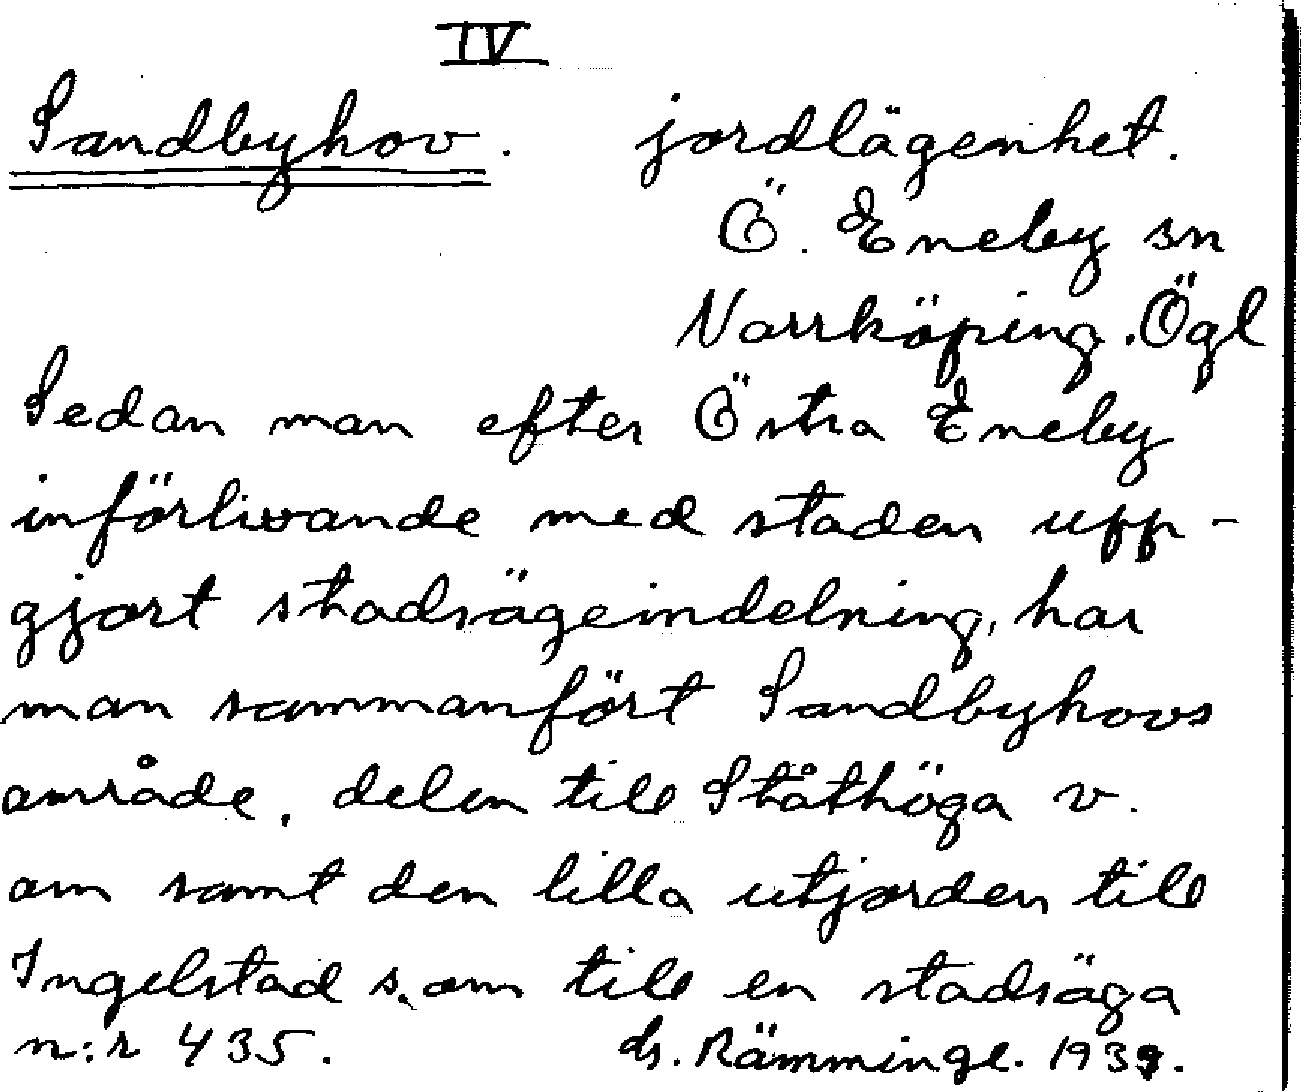 IV
Sandbyhov. jordlägenhet.
Ö. Eneby sn
Norrköping. Ögl
Sedan man efter Östra Eneby
införlivande med staden upp-
gjort stadsägeindelning, har
man sammanfört Sandbyhovs
område, delen till Ståthöga v.
om samt den lilla utjorden till
Ingelstad s. om till en stadsäga
n:r 435. ds. Rämningl. 1939.